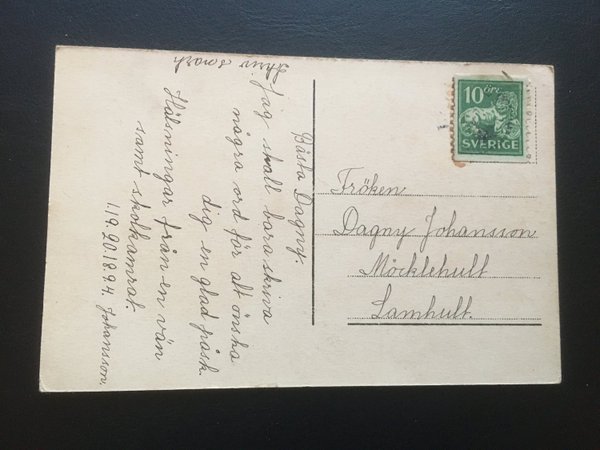 Bästa Dagny.
Jag skall bara skriva
några ord för att önska
dig en glad påsk.
Hälsningar från en vän
samt skolkamrat.
1.19.20.18.9.4. Johansson.
Skriv snart
10 öre
SVERIGE
Fröken
Dagny Johansson
Möcklehult
Lamhult.